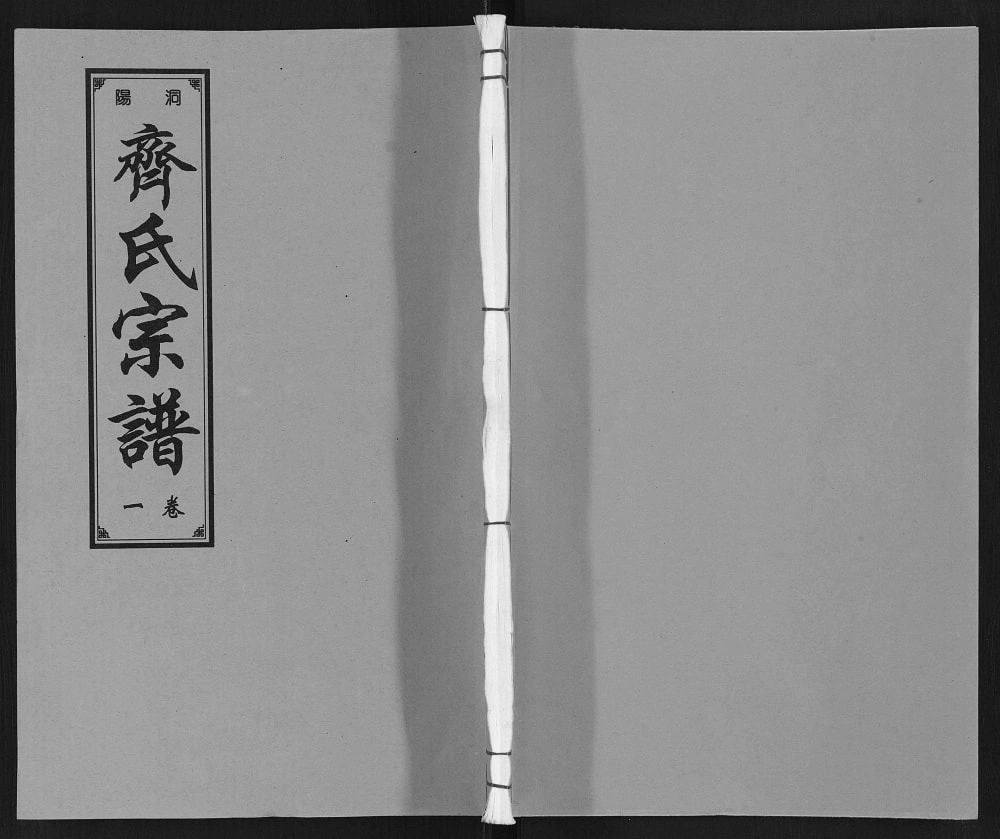 洞陽
齊氏宗譜
卷一